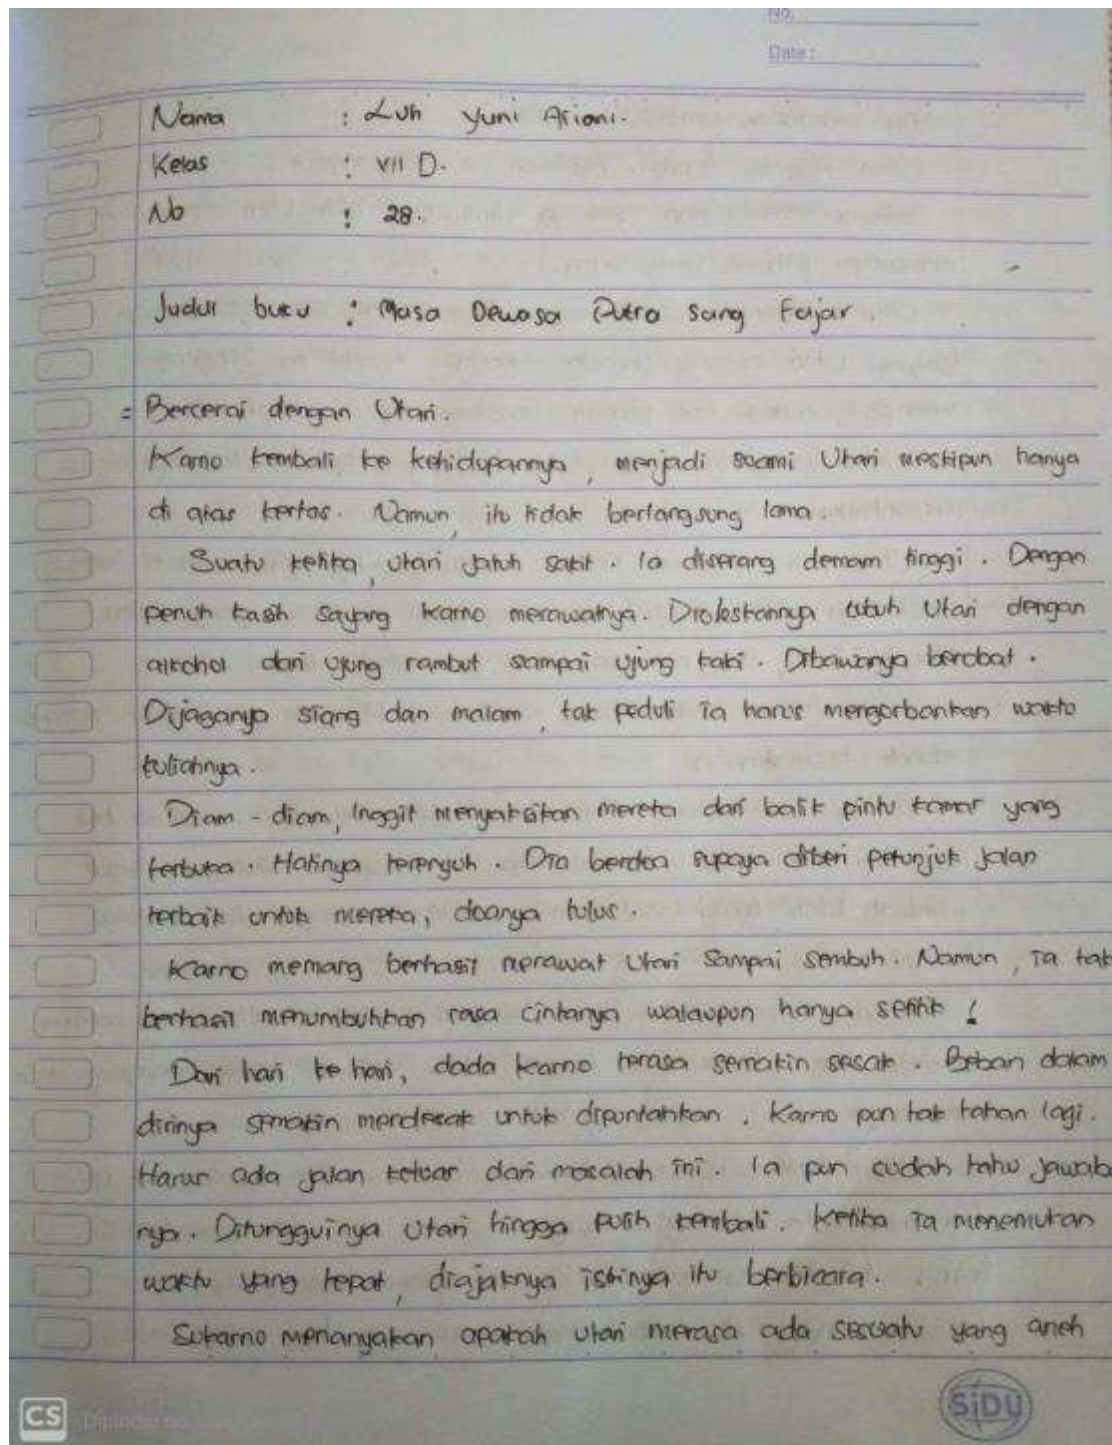 No.
Date:
Nama : Luh Yuni Ariani.
Kelas : VII D.
No : 28.
Judul buku : Masa Dewasa Putra Sang Fajar.
= Bercerai dengan Utari.
Karno kembali ke kehidupannya, menjadi suami Utari meskipun hanya
di atas kertas. Namun, itu tidak berlangsung lama.
Suatu ketika, utari jatuh sakit. Ia diserang demam tinggi. Dengan
penuh kasih sayang Karno merawatnya. Dioleskannya tubuh Utari dengan
alkohol dari ujung rambut sampai ujung kaki. Dibawanya berobat.
Dijaganya siang dan malam, tak peduli ia harus mengorbankan waktu
kuliahnya.
Diam - diam, Inggit menyaksikan mereka dari balik pintu kamar yang
terbuka. Hatinya terenyuh. Dia berdoa supaya diberi petunjuk jalan
terbaik untuk mereka, doanya tulus.
Karno memang berhasil merawat Utari sampai sembuh. Namun, ia tak
berhasil menumbuhkan rasa cintanya walaupun hanya setitik!
Dari hari ke hari, dada Karno terasa semakin sesak. Beban dalam
dirinya semakin mendesak untuk dipuntahkan. Karno pun tak tahan lagi.
Harus ada jalan keluar dari masalah ini. Ia pun sudah tahu jawab
nya. Ditungguinya Utari hingga pulih kembali. Ketika ia menemukan
waktu yang tepat, diajaknya istrinya itu berbicara.
Sukarno menanyakan apakah utari merasa ada sesuatu yang aneh
SiDU
CS